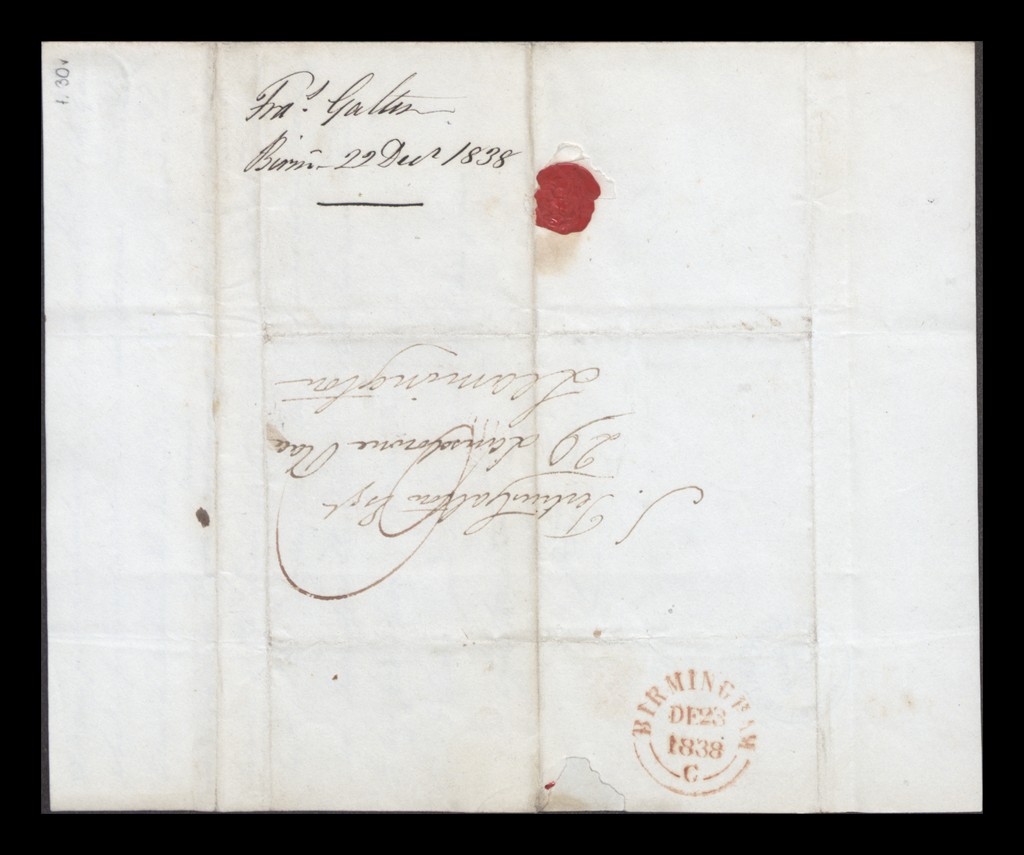 f. 30v
Fras. Galton
Birmm. 22 Decr 1838
S. Tertius Galton Esqr
29 Lansdowne Place
Leamington
BIRMINGHAM
DE 23
1838
C